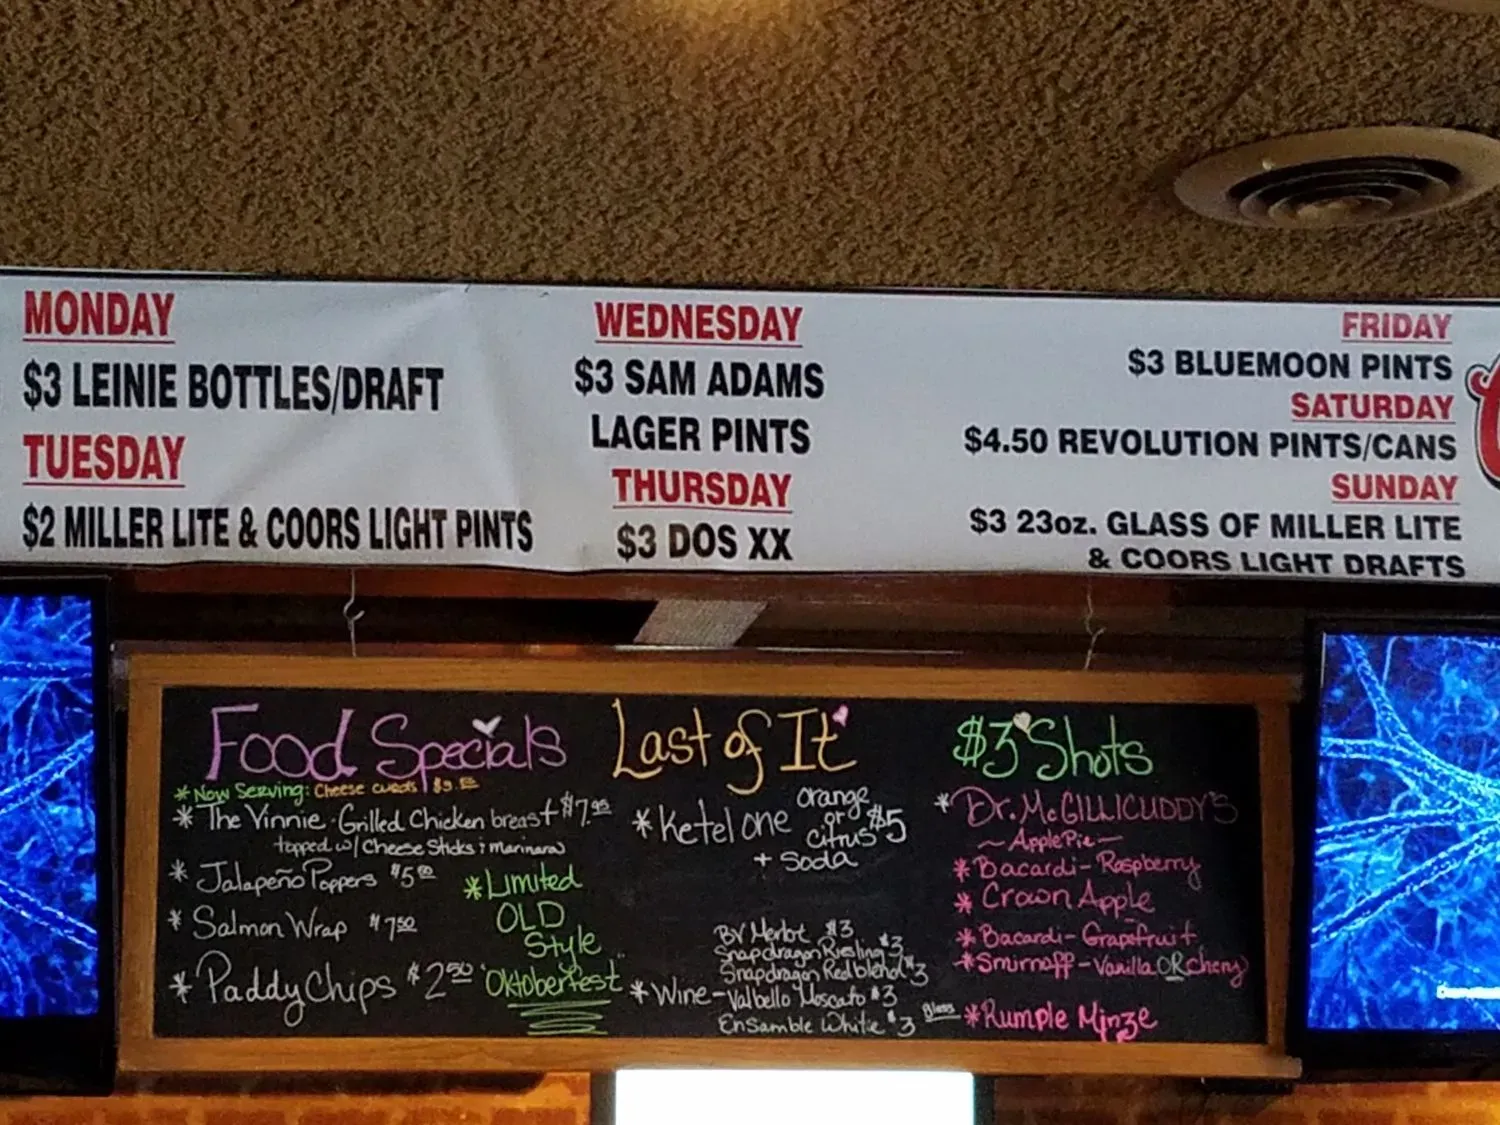 MONDAY
$3 LEINIE BOTTLES/DRAFT
TUESDAY
$2 MILLER LITE & COORS LIGHT PINTS
WEDNESDAY
$3 SAM ADAMS
LAGER PINTS
THURSDAY
$3 DOS XX
FRIDAY
$3 BLUEMOON PINTS
SATURDAY
$4.50 REVOLUTION PINTS/CANS
SUNDAY
$3 23oz. GLASS OF MILLER LITE
& COORS LIGHT DRAFTS
Food Specials
* Now Serving: Cheese curds
* The Vinnie - Grilled Chicken breast $7.95
topped w/ Cheese Sticks & marinara
* Jalapeño Poppers $5.00
* Salmon Wrap $7.50
* Paddy Chips $2.50
* Limited
OLD
Style
Oktoberfest
Last of It
* Ketel One Orange or Citrus $5
+ Soda
BV Merlot $3
Snapdragon Riesling $3
Snapdragon Redblend $3
* Wine - Valbello Moscato $3
Ensamble Whitie $3 Glass
$3 Shots
* Dr. McGILLICUDDY'S
~ Apple Pie ~
* Bacardi - Raspberry
* Crown Apple
* Bacardi - Grapefruit
* Smirnoff - Vanilla OR cherry
* Rumple Minze